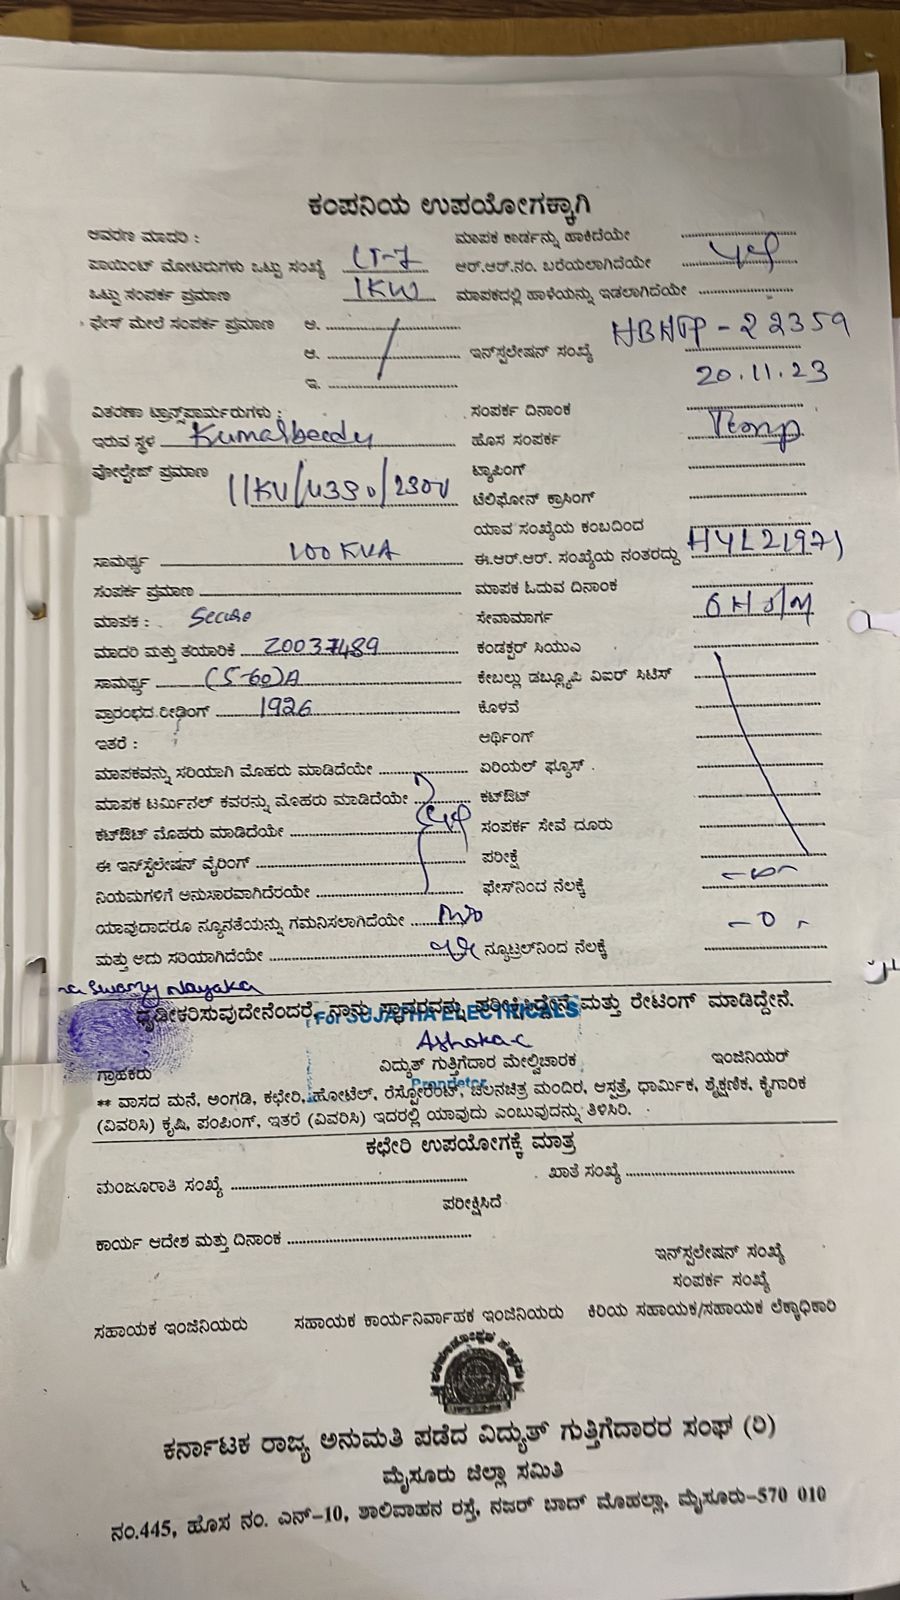 ಕಂಪನಿಯ ಉಪಯೋಗಕ್ಕಾಗಿ
ಆವರಣ ಮಾದರಿ : ಮಾಪಕ ಕಾರ್ಡನ್ನು ಹಾಕಿದೆಯೇ
ಪಾಯಿಂಟ್ ಮೋಟರುಗಳು ಒಟ್ಟು ಸಂಖ್ಯೆ LT-7 ಆರ್.ಆರ್.ನಂ. ಬರೆಯಲಾಗಿದೆಯೇ
ಒಟ್ಟು ಸಂಪರ್ಕ ಪ್ರಮಾಣ 1KW ಮಾಪಕದಲ್ಲಿ ಹಾಳೆಯನ್ನು ಇಡಲಾಗಿದೆಯೇ
ಫೇಸ್ ಮೇಲೆ ಸಂಪರ್ಕ ಪ್ರಮಾಣ ಅ.
ಆ. ಇನ್‌ಸ್ಟಲೇಷನ್ ಸಂಖ್ಯೆ HBHTP-22359
ಇ. 20.11.23
ವಿತರಣಾ ಟ್ರಾನ್ಸ್‌ಫಾರ್ಮರುಗಳು : ಸಂಪರ್ಕ ದಿನಾಂಕ
ಇರುವ ಸ್ಥಳ ಹೊಸ ಸಂಪರ್ಕ Temp
ವೋಲ್ಟೇಜ್ ಪ್ರಮಾಣ 11KV/ /230V ಟ್ಯಾಪಿಂಗ್
ಟೆಲಿಫೋನ್ ಕ್ರಾಸಿಂಗ್
ಯಾವ ಸಂಖ್ಯೆಯ ಕಂಬದಿಂದ
ಸಾಮರ್ಥ್ಯ 100 KVA ಈ.ಆರ್.ಆರ್. ಸಂಖ್ಯೆಯ ನಂತರದ್ದು HYL21971
ಸಂಪರ್ಕ ಪ್ರಮಾಣ ಮಾಪಕ ಓದುವ ದಿನಾಂಕ
ಮಾಪಕ : Secure ಸೇವಾಮಾರ್ಗ
ಮಾದರಿ ಮತ್ತು ತಯಾರಿಕೆ 20037489 ಕಂಡಕ್ಟರ್ ಸಿಯುಎ
ಸಾಮರ್ಥ್ಯ (5-60)A ಕೇಬಲ್ಲು ಡಬ್ಲ್ಯೂಪಿ ವಿಐರ್ ಸಿಟಿಸ್
ಪ್ರಾರಂಭದ ರೀಡಿಂಗ್ 1926 ಕೊಳವೆ
ಇತರೆ : ಅರ್ಥಿಂಗ್
ಮಾಪಕವನ್ನು ಸರಿಯಾಗಿ ಮೊಹರು ಮಾಡಿದೆಯೇ ಏರಿಯಲ್ ಫ್ಯೂಸ್
ಮಾಪಕ ಟರ್ಮಿನಲ್ ಕವರನ್ನು ಮೊಹರು ಮಾಡಿದೆಯೇ ಕಟ್‌ಔಟ್
ಕಟ್‌ಔಟ್ ಮೊಹರು ಮಾಡಿದೆಯೇ ಸಂಪರ್ಕ ಸೇವೆ ದೂರು
ಈ ಇನ್‌ಸ್ಟೆಲೇಷನ್ ವೈರಿಂಗ್ ಪರೀಕ್ಷೆ
ನಿಯಮಗಳಿಗೆ ಅನುಸಾರವಾಗಿದೆರೆಯೇ ಫೇಸ್‌ನಿಂದ ನೆಲಕ್ಕೆ
ಯಾವುದಾದರೂ ನ್ಯೂನತೆಯನ್ನು ಗಮನಿಸಲಾಗಿದೆಯೇ
ಮತ್ತು ಅದು ಸರಿಯಾಗಿದೆಯೇ ನ್ಯೂಟ್ರಲ್‌ನಿಂದ ನೆಲಕ್ಕೆ
Swamy Nayaka
ದೃಢೀಕರಿಸುವುದೇನೆಂದರೆ, ನಾನು ಸ್ಥಾವರವನ್ನು ಪರೀಕ್ಷಿಸಿದ್ದೇನೆ ಮತ್ತು ರೇಟಿಂಗ್ ಮಾಡಿದ್ದೇನೆ.
For SUJATHA ELECTRICALS
Ashoka-C
ವಿದ್ಯುತ್ ಗುತ್ತಿಗೆದಾರ ಮೇಲ್ವಿಚಾರಕ ಇಂಜಿನಿಯರ್
ಗ್ರಾಹಕರು
Proprietor
** ವಾಸದ ಮನೆ, ಅಂಗಡಿ, ಕಛೇರಿ, ಹೋಟೆಲ್, ರೆಸ್ಟೋರೆಂಟ್, ಚಲನಚಿತ್ರ ಮಂದಿರ, ಆಸ್ಪತ್ರೆ, ಧಾರ್ಮಿಕ, ಶೈಕ್ಷಣಿಕ, ಕೈಗಾರಿಕ
(ವಿವರಿಸಿ) ಕೃಷಿ, ಪಂಪಿಂಗ್, ಇತರೆ (ವಿವರಿಸಿ) ಇದರಲ್ಲಿ ಯಾವುದು ಎಂಬುವುದನ್ನು ತಿಳಿಸಿರಿ.
ಕಛೇರಿ ಉಪಯೋಗಕ್ಕೆ ಮಾತ್ರ
ಮಂಜೂರಾತಿ ಸಂಖ್ಯೆ ಖಾತೆ ಸಂಖ್ಯೆ
ಪರೀಕ್ಷಿಸಿದೆ
ಕಾರ್ಯ ಆದೇಶ ಮತ್ತು ದಿನಾಂಕ
ಇನ್‌ಸ್ಟಲೇಷನ್ ಸಂಖ್ಯೆ
ಸಂಪರ್ಕ ಸಂಖ್ಯೆ
ಸಹಾಯಕ ಇಂಜಿನಿಯರು ಸಹಾಯಕ ಕಾರ್ಯನಿರ್ವಾಹಕ ಇಂಜಿನಿಯರು ಕಿರಿಯ ಸಹಾಯಕ/ಸಹಾಯಕ ಲೆಕ್ಕಾಧಿಕಾರಿ
ಕರ್ನಾಟಕ ರಾಜ್ಯ ಅನುಮತಿ ಪಡೆದ ವಿದ್ಯುತ್ ಗುತ್ತಿಗೆದಾರರ ಸಂಘ (ರಿ)
ಮೈಸೂರು ಜಿಲ್ಲಾ ಸಮಿತಿ
ನಂ.445, ಹೊಸ ನಂ. ಎನ್-10, ಶಾಲಿವಾಹನ ರಸ್ತೆ, ನಜರ್ ಬಾದ್ ಮೊಹಲ್ಲಾ, ಮೈಸೂರು-570 010